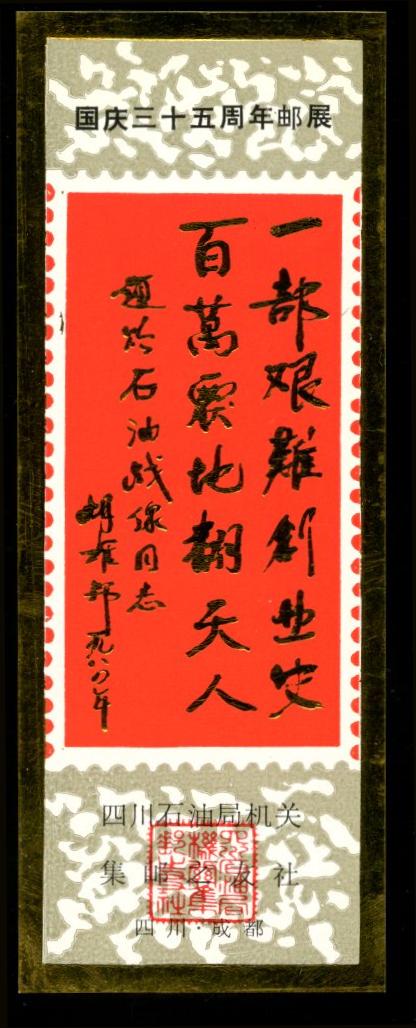 国庆三十五周年邮展
一部艰難創业史
百萬震地翻天人
题於石油战线同志
胡耀邦 一九八〇年
四川石油局机关
集邮之友社
四川·成都